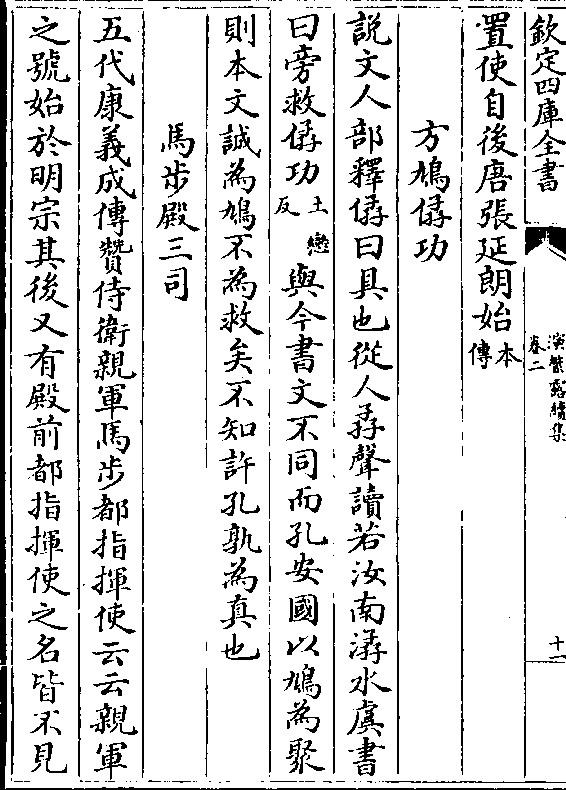 欽定四庫全書
演繁露續集
卷二
十一
置使自後唐張延朗始本傳
方鳩僝功
説文人部釋僝曰具也從人孨聲讀若汝南潺水虞書
曰旁救僝功士戀反與今書文不同而孔安國以鳩為聚
則本文誠為鳩不為救矣不知許孔孰為真也
馬步殿三司
五代康義成傳贊侍衛親軍馬步都指揮使云云親軍
之號始於明宗其後又有殿前都指揮使之名皆不見